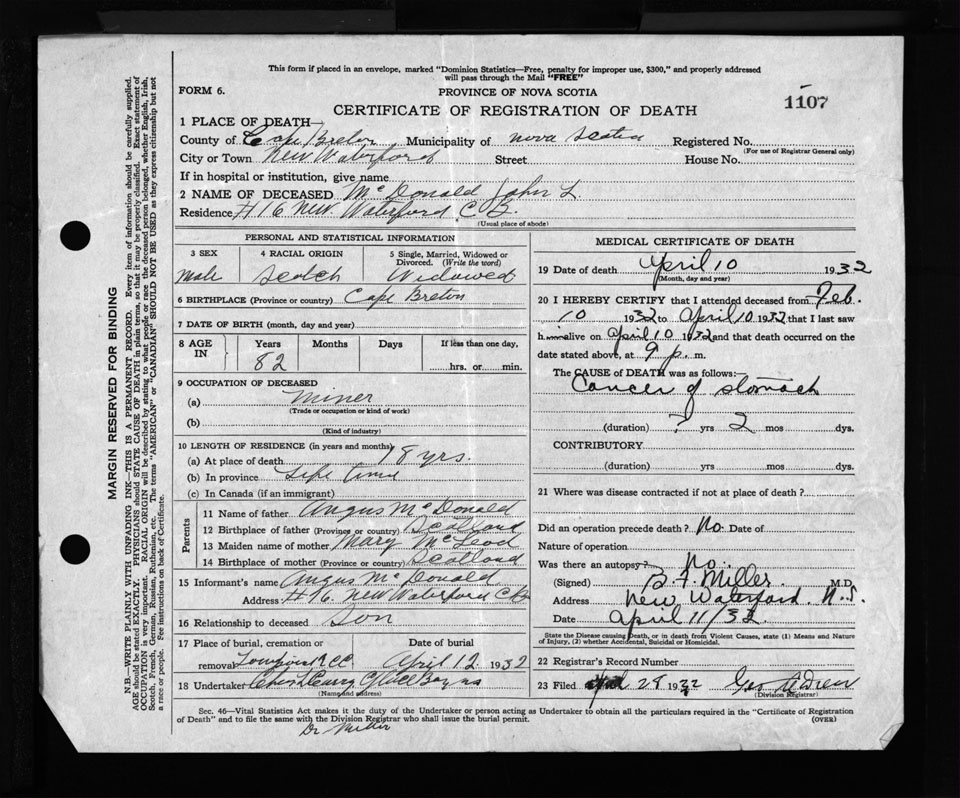 This form if placed in an envelope, marked "Dominion Statistics—Free, penalty for improper use, $300," and properly addressed
will pass through the Mail "FREE"
FORM 6.
PROVINCE OF NOVA SCOTIA
1107
CERTIFICATE OF REGISTRATION OF DEATH
1 PLACE OF DEATH—
County of Cape Breton Municipality of Nova Scotia Registered No.
(For use of Registrar General only)
City or Town New Waterford Street House No.
If in hospital or institution, give name
2 NAME OF DECEASED McDonald John L.
Residence #16 New Waterford C.B.
(Usual place of abode)
PERSONAL AND STATISTICAL INFORMATION
3 SEX
Male
4 RACIAL ORIGIN
Scotch
5 Single, Married, Widowed or
Divorced. (Write the word)
Widowed
6 BIRTHPLACE (Province or country) Cape Breton
7 DATE OF BIRTH (month, day and year)
8 AGE
IN
Years
82
Months
Days
If less than one day,
hrs. or min.
9 OCCUPATION OF DECEASED
(a) Miner
(Trade or occupation or kind of work)
(b)
(Kind of industry)
10 LENGTH OF RESIDENCE (in years and months)
(a) At place of death 18 yrs.
(b) In province Life time
(c) In Canada (if an immigrant)
Parents
11 Name of father Angus McDonald
12 Birthplace of father (Province or country) Scotland
13 Maiden name of mother Mary McLeod
14 Birthplace of mother (Province or country) Scotland
15 Informant's name Angus McDonald
Address #16. New Waterford CB
16 Relationship to deceased Son
17 Place of burial, cremation or
removal
Date of burial
April 12 1932
18 Undertaker Curry Glace Bay NS
(Name and address)
MEDICAL CERTIFICATE OF DEATH
19 Date of death April 10 1932
(Month, day and year)
20 I HEREBY CERTIFY that I attended deceased from Feb.
10 1932 to April 10 1932 that I last saw
him alive on April 10 1932 and that death occurred on the
date stated above, at 9 p. m.
The CAUSE OF DEATH was as follows:—
Cancer of stomach
(duration) ? yrs 2 mos dys.
CONTRIBUTORY
(duration) yrs mos dys.
21 Where was disease contracted if not at place of death?
Did an operation precede death? No. Date of
Nature of operation
Was there an autopsy? No.
(Signed) B. F. Miller. M.D.
Address New Waterford. N.S.
Date April 11/32
State the Disease causing Death, or in death from Violent Causes, state (1) Means and Nature
of Injury, (2) whether Accidental, Suicidal or Homicidal.
22 Registrar's Record Number
23 Filed 28 1932
(Division Registrar)
Sec. 46—Vital Statistics Act makes it the duty of the Undertaker or person acting as Undertaker to obtain all the particulars required in the "Certificate of Registration
of Death" and to file the same with the Division Registrar who shall issue the burial permit.
(OVER)
Dr Miller
MARGIN RESERVED FOR BINDING
N.B.—WRITE PLAINLY WITH UNFADING INK—THIS IS A PERMANENT RECORD. Every item of information should be carefully supplied.
AGE should be stated EXACTLY. PHYSICIANS should STATE CAUSE OF DEATH in plain terms, so that it may be properly classified. Exact statement of
OCCUPATION is very important. RACIAL ORIGIN will be described by stating to what people or race the deceased person belonged, whether English, Irish,
Scotch, French, German, Russian, Ruthenian, etc. The terms "AMERICAN" or "CANADIAN" SHOULD NOT BE USED as they express citizenship but not
a race or people. See instructions on back of Certificate.